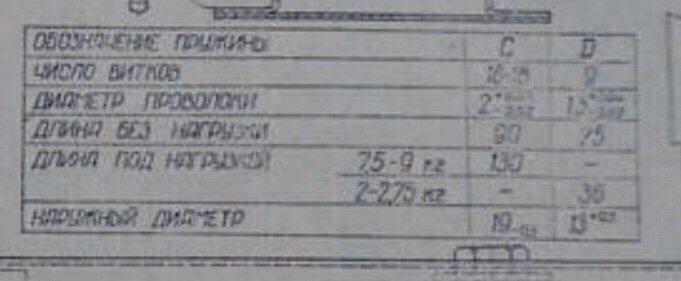 ОБОЗНАЧЕНИЕ ПРУЖИНЫ C D
ЧИСЛО ВИТКОВ 16-18 9
ДИАМЕТР ПРОВОЛОКИ
ДЛИНА БЕЗ НАГРУЗКИ 90 75
ДЛИНА ПОД НАГРУЗКОЙ 7,5-9 кг 130 -
2-2,75 кг - 36
НАРУЖНЫЙ ДИАМЕТР 19 13